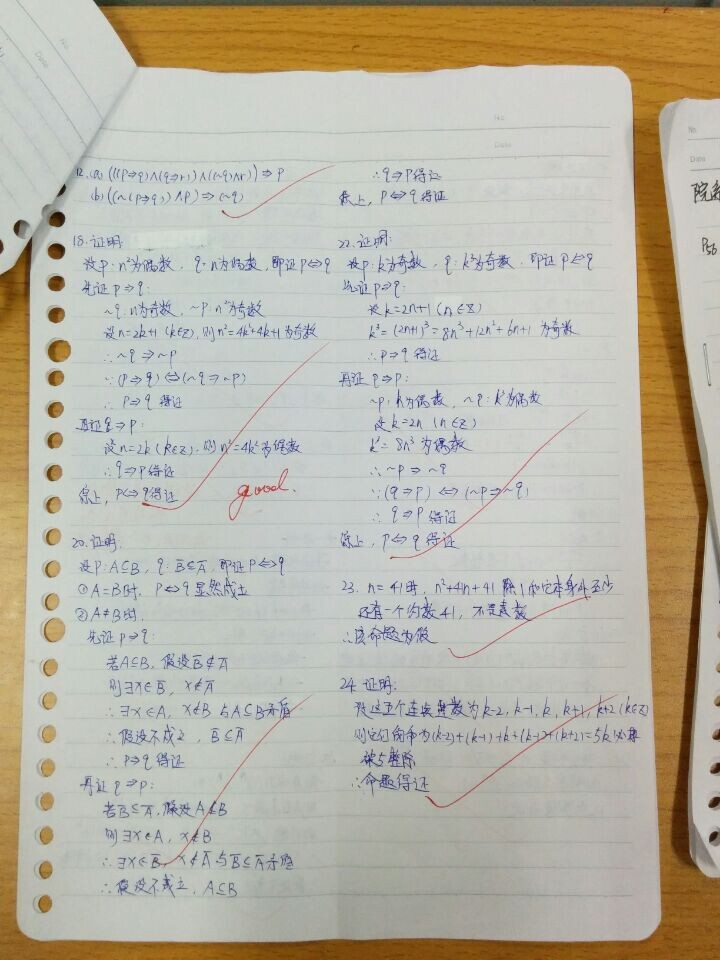 No.
Date
12. (a) (((P⇒q)∧(q⇒r)∧(~q∧r))⇒P
(b) ((~(P⇒q))∧P)⇒(~q)
18. 证明:
设P: n²为偶数, q: n为偶数, 即证P⇔q
先证P⇒q:
~q: n为奇数, ~P: n²为奇数
设n=2k+1 (k∈Z), 则n²=4k²+4k+1为奇数
∴~q⇒~P
∵(P⇒q)⇔(~q⇒~P)
∴P⇒q得证
再证q⇒P:
设n=2k (k∈Z), 则n²=4k²为偶数
∴q⇒P得证
综上, P⇔q得证
good.
20. 证明:
设P: A⊆B, q: B̅⊆A̅, 即证P⇔q
①A=B时, P⇔q显然成立
②A≠B时,
先证P⇒q:
若A⊆B, 假设B̅⊄A̅
则∃x∈B̅, x∉A̅
∴∃x∈A, x∉B 与A⊆B矛盾
∴假设不成立, B̅⊆A̅
∴P⇒q得证
再证q⇒P:
若B̅⊆A̅, 假设A⊄B
则∃x∈A, x∉B
∴∃x∈B̅, x∉A̅与B̅⊆A̅矛盾
∴假设不成立, A⊆B
∴q⇒P得证
综上, P⇔q得证
22. 证明:
设P: k为奇数, q: k³为奇数, 即证P⇔q
先证P⇒q:
设k=2n+1 (n∈Z)
k³=(2n+1)³=8n³+12n²+6n+1 为奇数
∴P⇒q得证
再证q⇒P:
~P: k为偶数, ~q: k³为偶数
设k=2n (n∈Z)
k³=8n³为偶数
∴~P⇒~q
∵(q⇒P)⇔(~P⇒~q)
∴q⇒P得证
综上, P⇔q得证
23. n=41时, n²+41n+41 除1和它本身外至少
还有一个约数41, 不是素数
∴该命题为假
24. 证明:
设这五个连续整数为k-2, k-1, k, k+1, k+2 (k∈Z)
则它们的和为(k-2)+(k-1)+k+(k+1)+(k+2)=5k
被5整除
∴命题得证
No.
Date
院系
P56